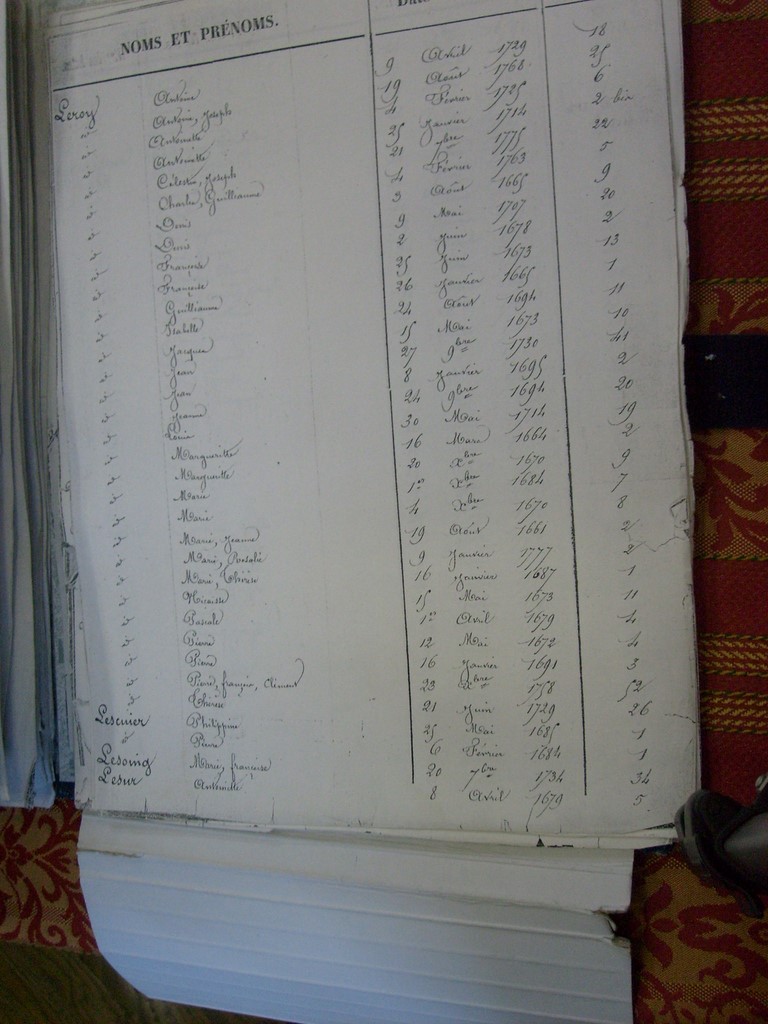 NOMS ET PRÉNOMS.
Leroy Antoine 9 Avril 1729 18
id Antoine, Joseph 19 Août 1768 25
id Antoinette 4 Février 1725 6
id Antoinette 25 Janvier 1714 2 bis
id Célestin, Joseph 21 7bre 1775 22
id Charles, Guillaume 4 Février 1763 5
id Denis 3 Août 1665 9
id Denis 9 Mai 1707 20
id Françoise 2 Juin 1678 2
id Françoise 25 Juin 1673 13
id Guillaume 26 Janvier 1665 1
id Isabelle 24 Août 1694 11
id Jacques 15 Mai 1673 10
id Jean 27 9bre 1730 41
id Jean 8 Janvier 1695 2
id Jeanne 24 9bre 1694 20
id Louis 30 Mai 1714 19
id Marguerite 16 Mars 1664 2
id Marguerite 20 Xbre 1670 9
id Marie 1er Xbre 1684 7
id Marie 4 Xbre 1670 8
id Marie, Jeanne 19 Août 1661 2
id Marie, Rosalie 9 Janvier 1777 2
id Marie, Thérèse 16 Janvier 1687 1
id Nicaisse 15 Mai 1673 11
id Pascale 1er Avril 1679 4
id Pierre 12 Mai 1672 4
id Pierre 16 Janvier 1691 3
id Pierre, françois, Clément 23 Xbre 1758 52
id Thérèse 21 Juin 1729 26
Lescuier Philippine 25 Mai 1685 1
id Pierre 6 Février 1684 1
Lesoing Marie, françoise 20 7bre 1734 34
Lesur Antoinette 8 Avril 1679 5